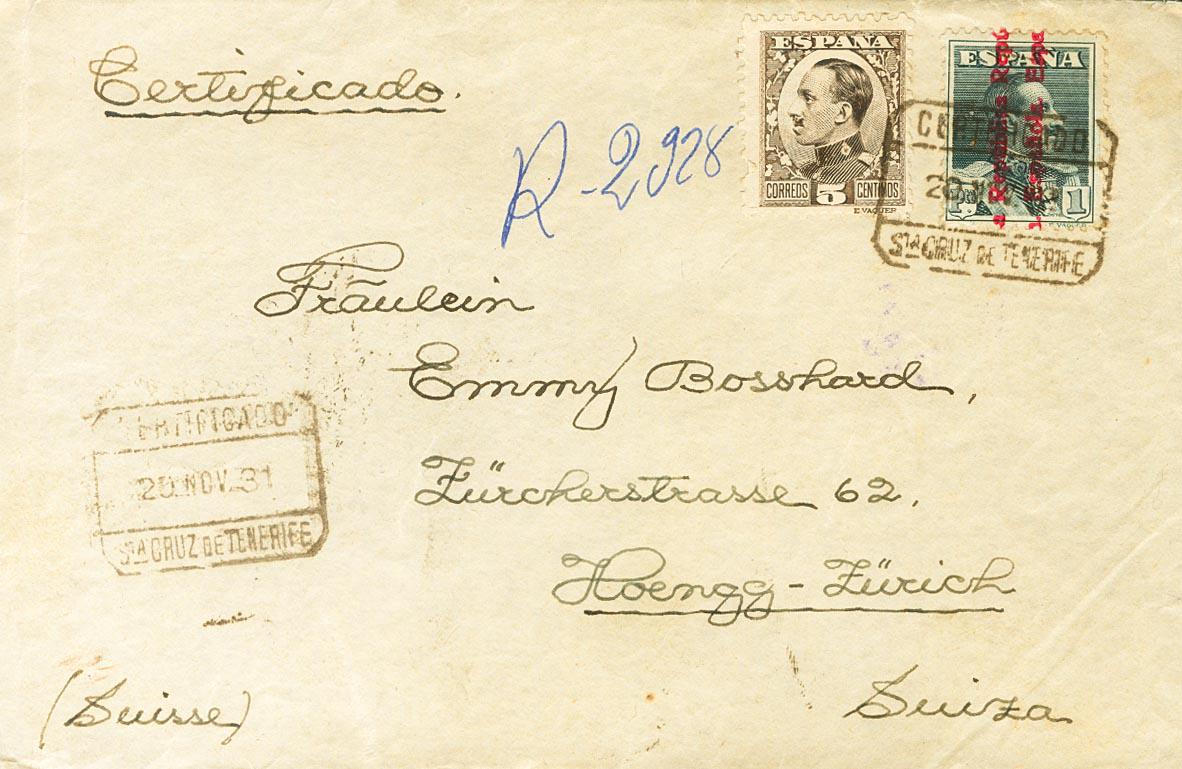 Certificado.
R-2928
ESPAÑA
CORREOS 5 CENTIMOS
E. VAQUER
ESPAÑA
a República
Española.
1
E. VAQUER
STA CRUZ DE TENERIFE
Fräulein
Emmy Bosshard,
Zürcherstrasse 62.
Hoengg-Zürich
Suiza
CERTIFICADO
20 NOV. 31
STA CRUZ DE TENERIFE
(Suisse)